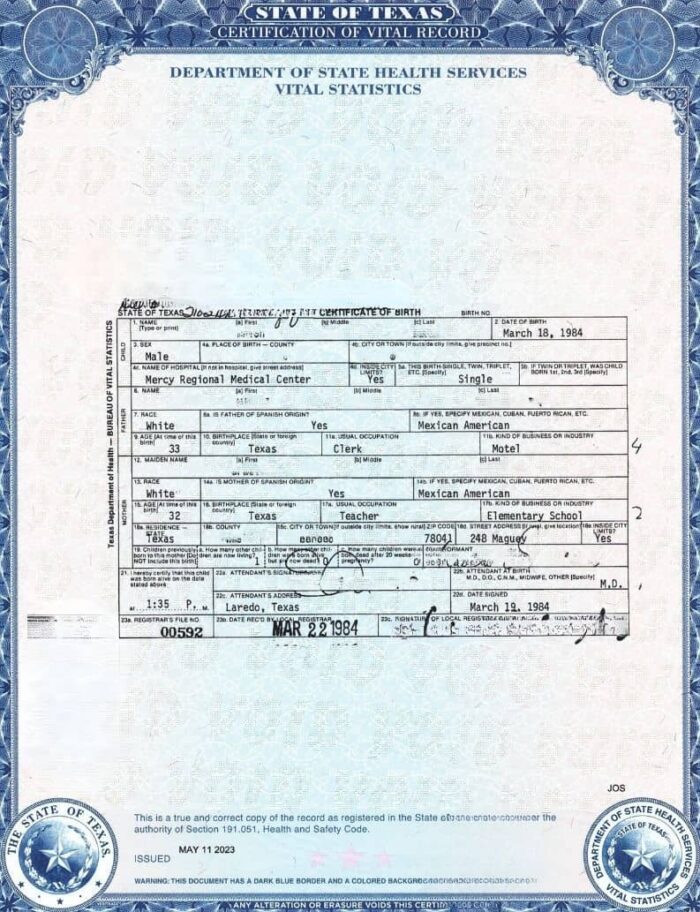 STATE OF TEXAS
CERTIFICATION OF VITAL RECORD
DEPARTMENT OF STATE HEALTH SERVICES
VITAL STATISTICS
STATE OF TEXAS CERTIFICATE OF BIRTH BIRTH NO.
Texas Department of Health — BUREAU OF VITAL STATISTICS
CHILD
1. NAME (a) First (b) Middle (c) Last 2. DATE OF BIRTH
[Type or print] March 18, 1984
3. SEX 4a. PLACE OF BIRTH — COUNTY 4b. CITY OR TOWN [If outside city limits, give precinct no.]
Male
4c. NAME OF HOSPITAL [If not in hospital, give street address] 4d. INSIDE CITY LIMITS? 5a. THIS BIRTH-SINGLE, TWIN, TRIPLET, ETC. [Specify] 5b. IF TWIN OR TRIPLET, WAS CHILD BORN 1st, 2nd, 3rd [Specify]
Mercy Regional Medical Center Yes Single
FATHER
6. NAME (a) First (b) Middle (c) Last
7. RACE 8a. IS FATHER OF SPANISH ORIGIN? 8b. IF YES, SPECIFY MEXICAN, CUBAN, PUERTO RICAN, ETC.
White Yes Mexican American
9. AGE [At time of this birth] 10. BIRTHPLACE [State or foreign country] 11a. USUAL OCCUPATION 11b. KIND OF BUSINESS OR INDUSTRY
33 Texas Clerk Motel
4
MOTHER
12. MAIDEN NAME (a) First (b) Middle (c) Last
13. RACE 14a. IS MOTHER OF SPANISH ORIGIN? 14b. IF YES, SPECIFY MEXICAN, CUBAN, PUERTO RICAN, ETC.
White Yes Mexican American
15. AGE [At time of this birth] 16. BIRTHPLACE [State or foreign country] 17a. USUAL OCCUPATION 17b. KIND OF BUSINESS OR INDUSTRY
32 Texas Teacher Elementary School
2
18a. RESIDENCE — STATE 18b. COUNTY 18c. CITY OR TOWN [If outside city limits, show rural] ZIP CODE 18d. STREET ADDRESS [If rural, give location] 18e. INSIDE CITY LIMITS?
Texas 78041 248 Maguey Yes
19. Children previously born to this mother [Do NOT include this birth] a. How many other children are now living? b. How many other children were born alive but are now dead? c. How many children were born dead after 20 weeks pregnancy? INFORMANT
1 0 0
21. I hereby certify that this child was born alive on the date stated above 22a. ATTENDANT'S SIGNATURE 22b. ATTENDANT AT BIRTH
M.D., D.O., C.N.M., MIDWIFE, OTHER [Specify]
M.D.
22c. ATTENDANT'S ADDRESS 22d. DATE SIGNED
at 1:35 P. M. Laredo, Texas March 19, 1984
23a. REGISTRAR'S FILE NO. 23b. DATE REC'D BY LOCAL REGISTRAR 23c. SIGNATURE OF LOCAL REGISTRAR
00592 MAR 22 1984
JOS
This is a true and correct copy of the record as registered in the State the
authority of Section 191.051, Health and Safety Code.
ISSUED MAY 11 2023
WARNING: THIS DOCUMENT HAS A DARK BLUE BORDER AND A COLORED
ANY ALTERATION OR ERASURE VOIDS THIS
THE STATE OF TEXAS
DEPARTMENT OF STATE HEALTH SERVICES
STATE OF TEXAS
VITAL STATISTICS